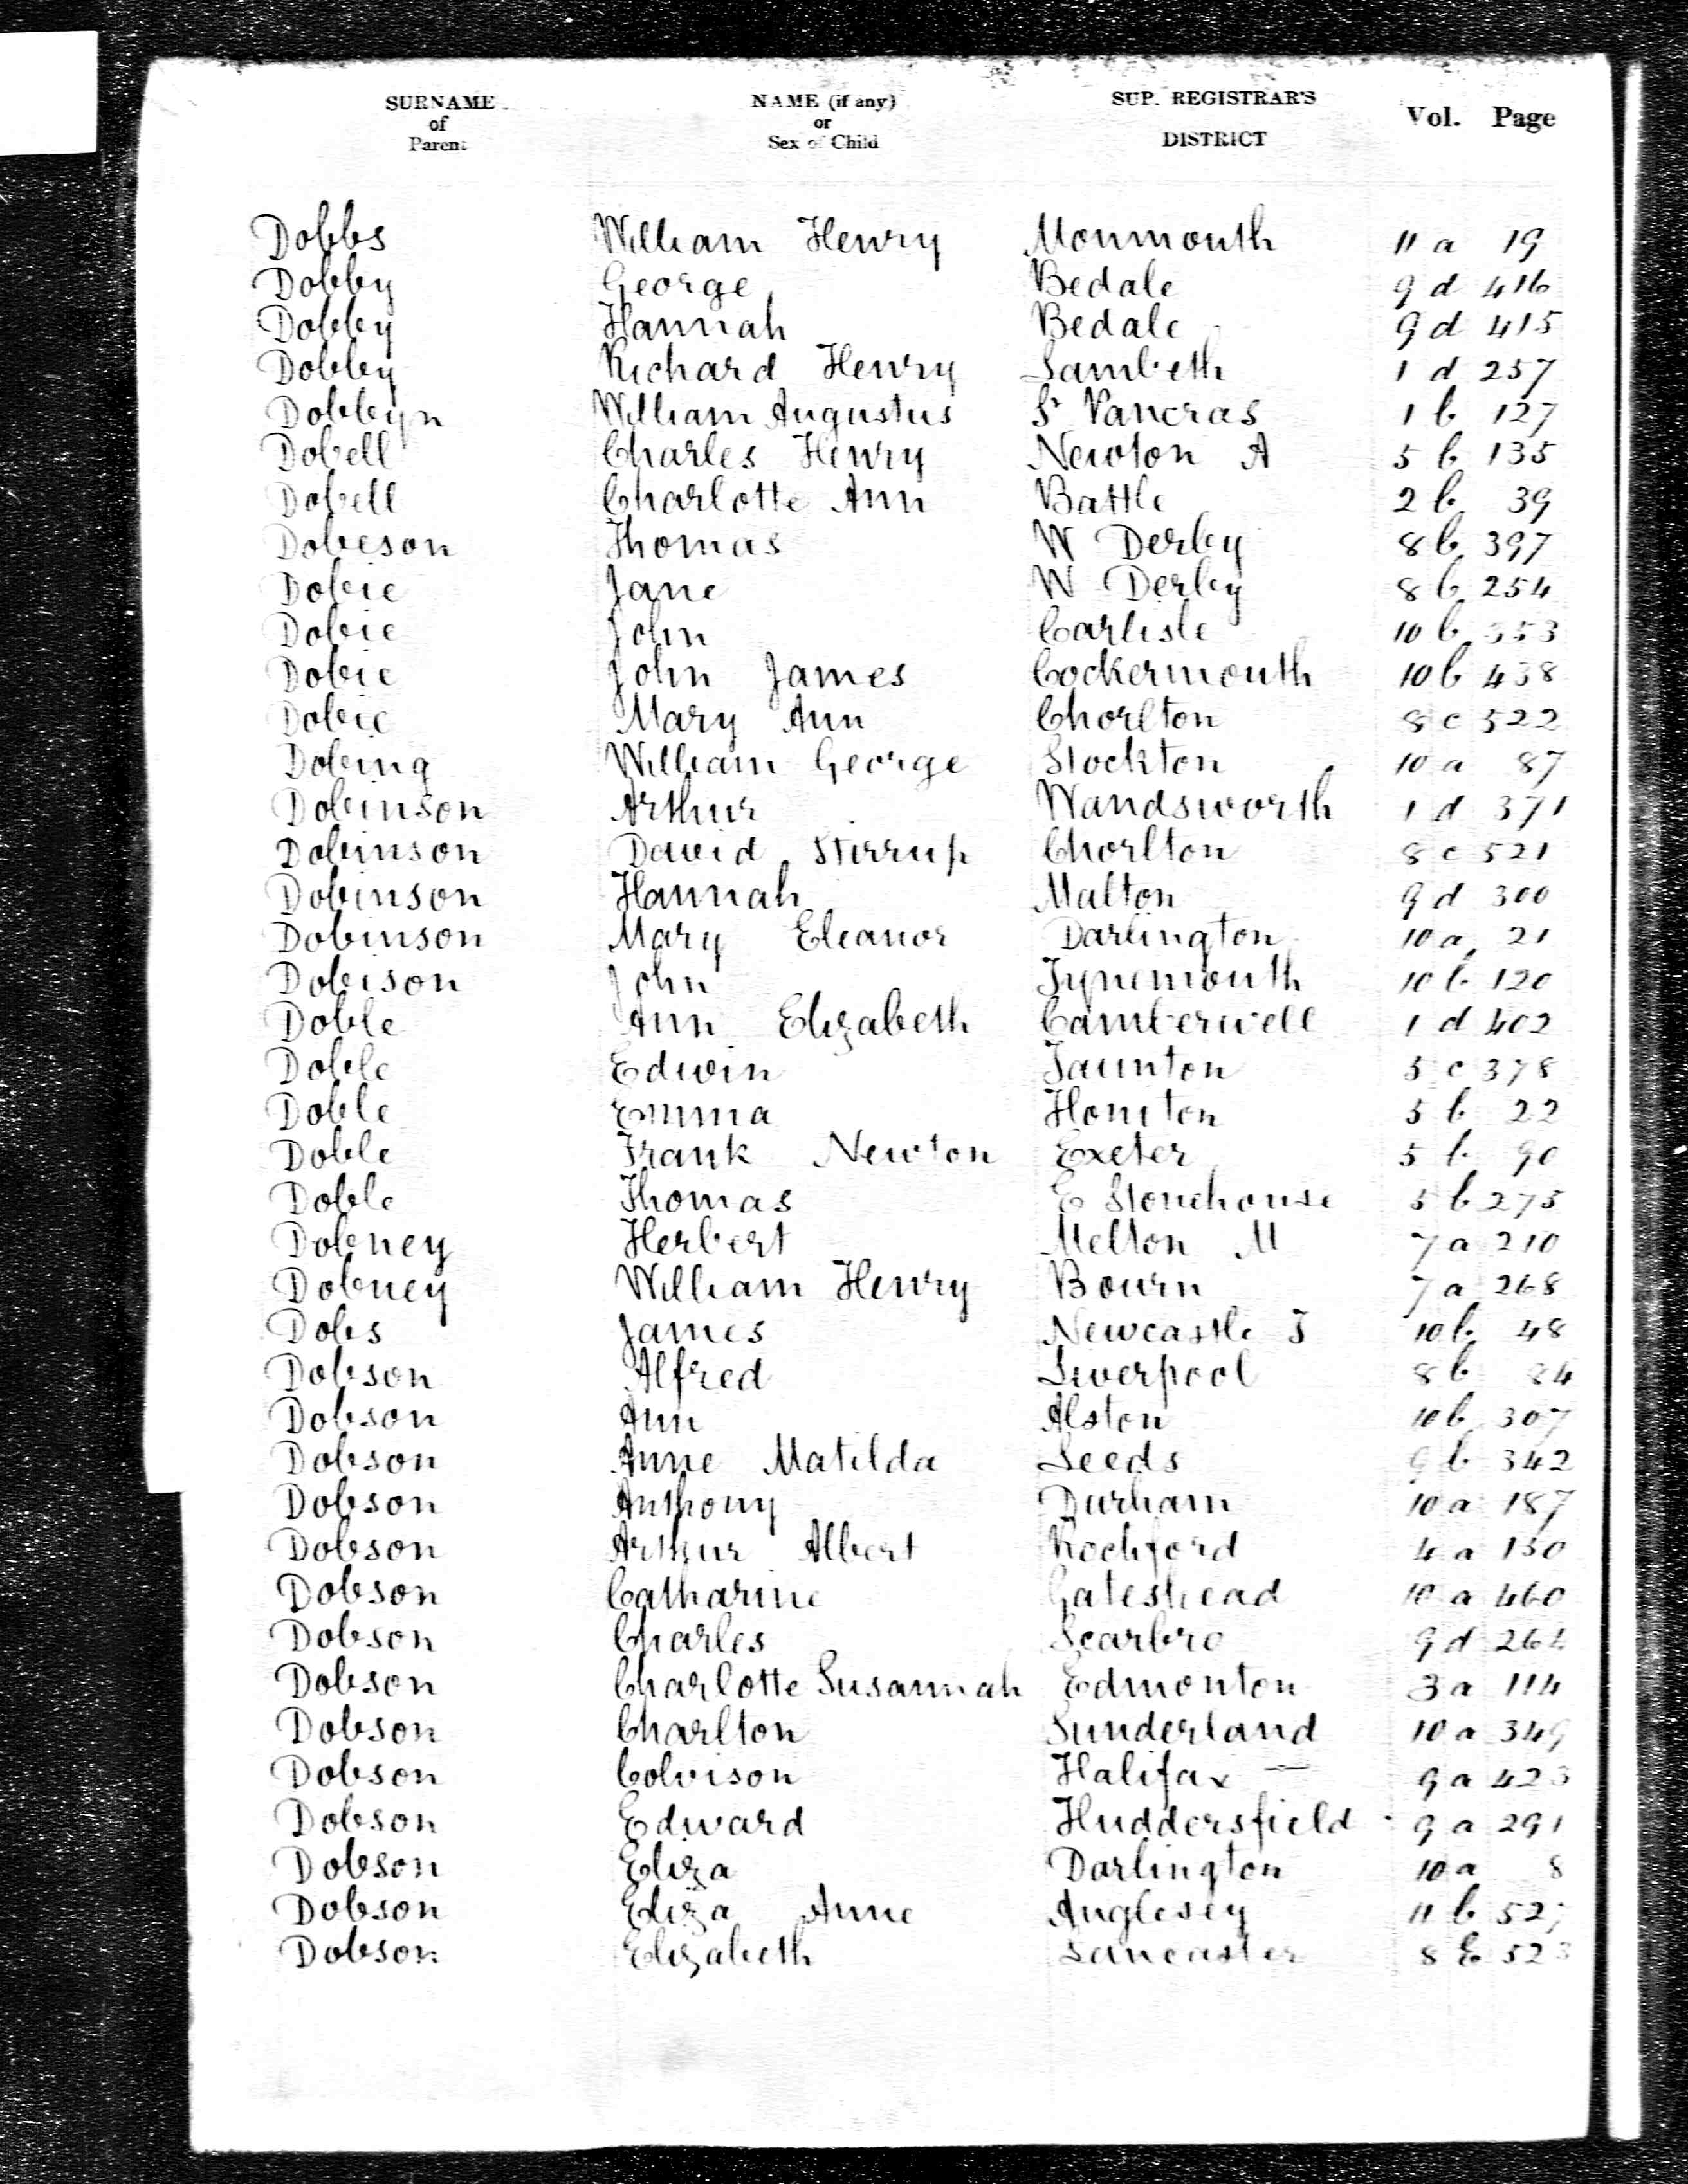 SURNAME of Parent NAME (if any) or Sex of Child SUP. REGISTRAR'S DISTRICT Vol. Page
Dobbs William Henry Monmouth 11 a 19
Dobby George Bedale 9 d 416
Dobby Hannah Bedale 9 d 415
Dobby Richard Henry Lambeth 1 d 257
Dobbyn William Augustus St Pancras 1 b 127
Dobell Charles Henry Newton A 5 b 135
Dobell Charlotte Ann Battle 2 b 39
Dobeson Thomas W Derby 8 b 397
Dobie Jane W Derby 8 b 254
Dobie John Carlisle 10 b 353
Dobie John James Cockermouth 10 b 438
Dobie Mary Ann Chorlton 8 c 522
Dobing William George Stockton 10 a 87
Dobinson Arthur Wandsworth 1 d 371
Dobinson David Stirrup Chorlton 8 c 521
Dobinson Hannah Malton 9 d 300
Dobinson Mary Eleanor Darlington 10 a 21
Dobison John Tynemouth 10 b 120
Doble Ann Elizabeth Camberwell 1 d 402
Doble Edwin Taunton 5 c 378
Doble Emma Honiton 5 b 22
Doble Frank Newton Exeter 5 b 90
Doble Thomas E Stonehouse 5 b 275
Dobney Herbert Melton M 7 a 210
Dobney William Henry Bourn 7 a 268
Dobs James Newcastle T 10 b 48
Dobson Alfred Liverpool 8 b 84
Dobson Ann Alston 10 b 307
Dobson Anne Matilda Leeds 9 b 342
Dobson Anthony Durham 10 a 187
Dobson Arthur Albert Rochford 4 a 150
Dobson Catharine Gateshead 10 a 460
Dobson Charles Scarbro 9 d
Dobson Charlotte Susannah Edmonton 3 a 114
Dobson Charlton Sunderland 10 a 349
Dobson Colvison Halifax — 9 a 423
Dobson Edward Huddersfield 9 a 291
Dobson Eliza Darlington 10 a 8
Dobson Eliza Anne Anglesey 11 b 527
Dobson Elizabeth Lancaster 8 E 523